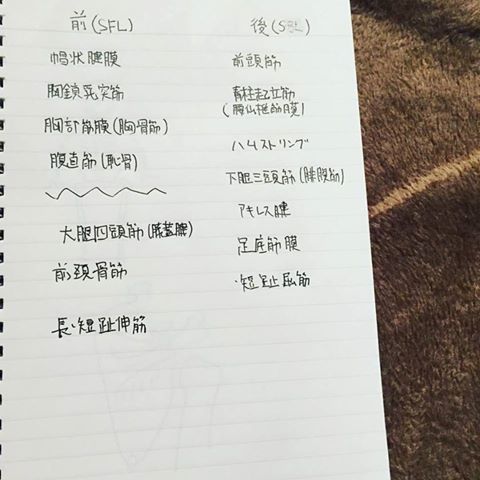 前(SFL)
帽状腱膜
胸鎖乳突筋
胸部筋膜(胸骨筋)
腹直筋(恥骨)
大腿四頭筋(膝蓋腱)
前頚骨筋
長・短趾伸筋
後(SBL)
前頭筋
脊柱起立筋
(腰仙椎筋膜)
ハムストリング
下腿三頭筋(腓腹筋)
アキレス腱
足底筋膜
・短趾屈筋